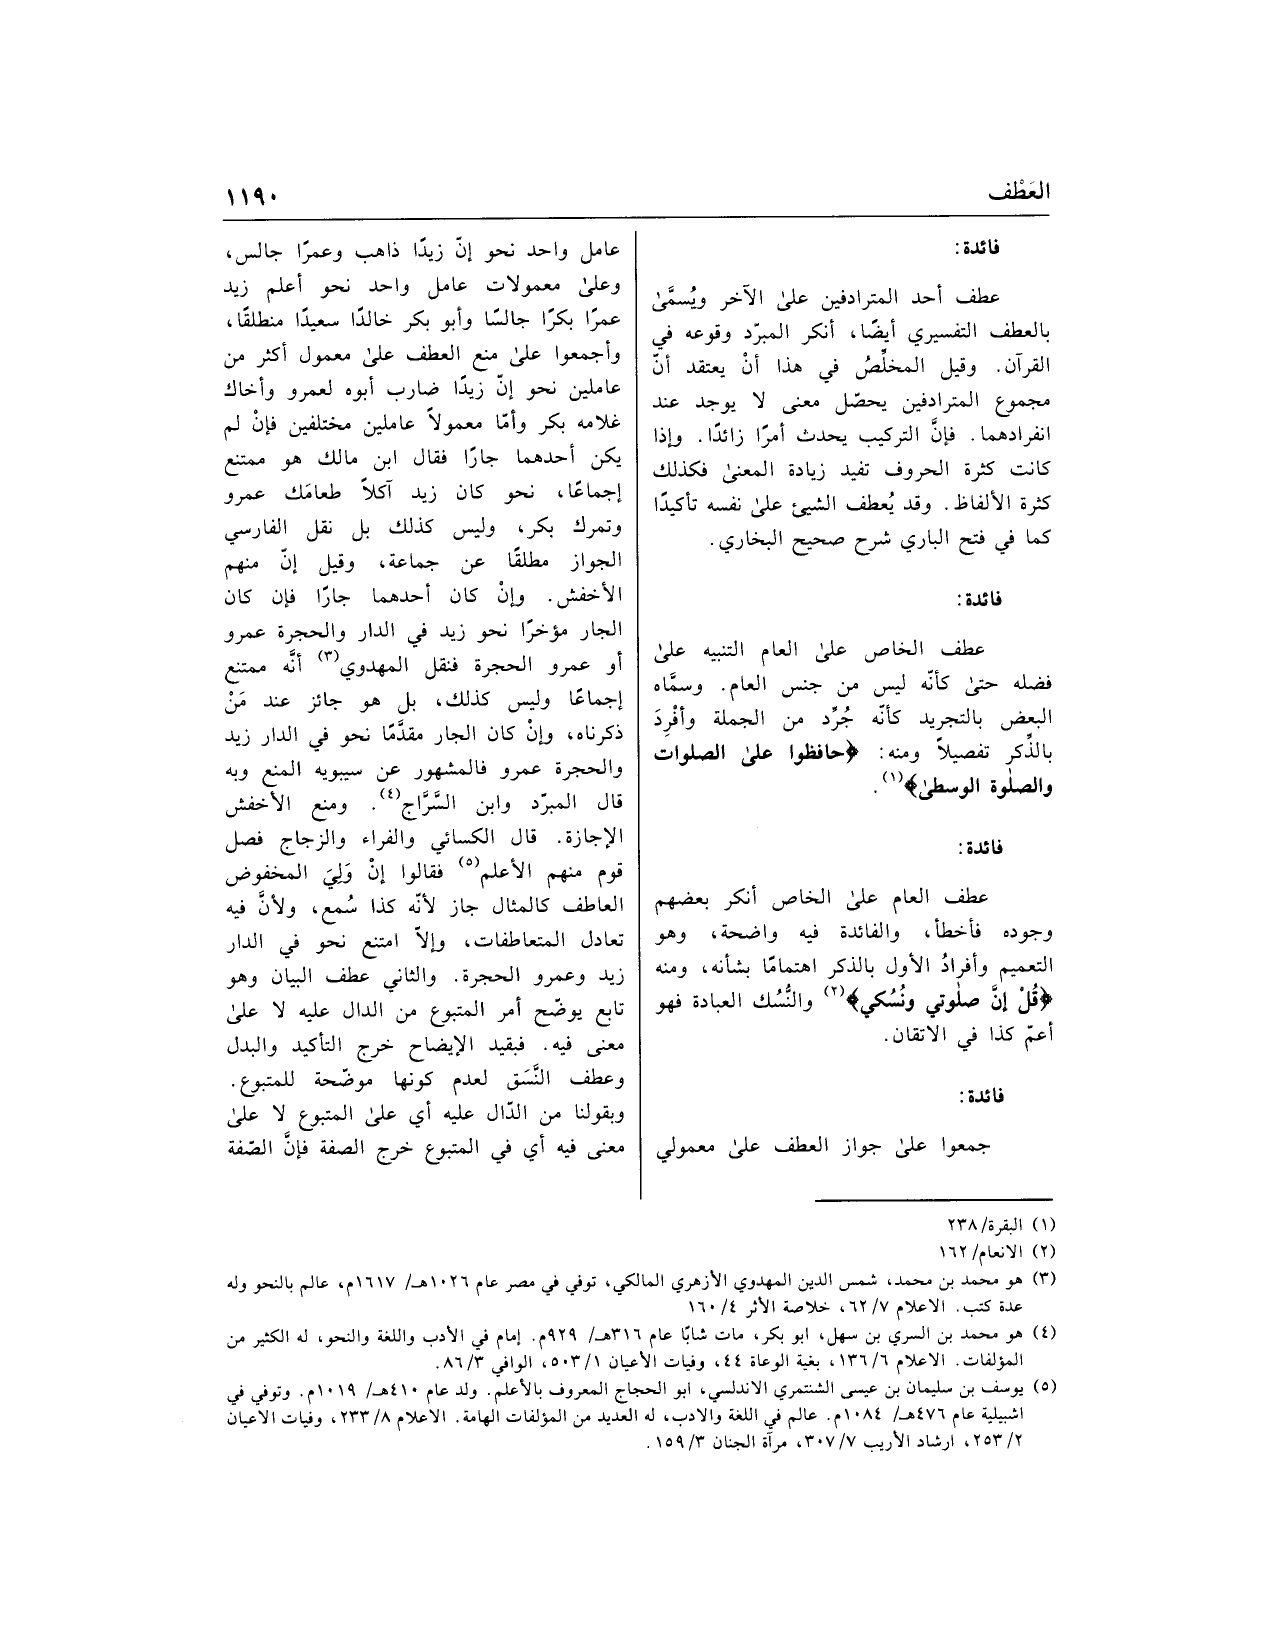 العَطْف
١١٩٠
فائدة:
عطف أحد المترادفين علىٰ الآخر ويُسمَّىٰ
بالعطف التفسيري أيضًا، أنكر المبرّد وقوعه في
القرآن. وقيل المخلِّصُ في هذا أنْ يعتقد أنّ
مجموع المترادفين يحصّل معنى لا يوجد عند
انفرادهما. فإنَّ التركيب يحدث أمرًا زائدًا. وإذا
كانت كثرة الحروف تفيد زيادة المعنىٰ فكذلك
كثرة الألفاظ. وقد يُعطف الشيئ علىٰ نفسه تأكيدًا
كما في فتح الباري شرح صحيح البخاري.
فائدة:
عطف الخاص علىٰ العام التنبيه علىٰ
فضله حتىٰ كأنّه ليس من جنس العام. وسمَّاه
البعض بالتجريد كأنّه جُرِّد من الجملة وأفْرِدَ
بالذِّكر تفصيلاً ومنه: ﴿حافظوا علىٰ الصلوات
والصلٰوة الوسطىٰ﴾(١).
فائدة:
عطف العام علىٰ الخاص أنكر بعضهم
وجوده فأخطأ، والفائدة فيه واضحة، وهو
التعميم وأفرادُ الأول بالذكر اهتمامًا بشأنه، ومنه
﴿قُلْ إنَّ صلٰوتي ونُسُكي﴾(٢) والنُّسُك العبادة فهو
أعمّ كذا في الاتقان.
فائدة:
جمعوا علىٰ جواز العطف علىٰ معمولي
عامل واحد نحو إنّ زيدًا ذاهب وعمرًا جالس،
وعلىٰ معمولات عامل واحد نحو أعلم زيد
عمرًا بكرًا جالسًا وأبو بكر خالدًا سعيدًا منطلقًا،
وأجمعوا علىٰ منع العطف علىٰ معمول أكثر من
عاملين نحو إنّ زيدًا ضارب أبوه لعمرو وأخاك
غلامه بكر وأمّا معمولاً عاملين مختلفين فإنْ لم
يكن أحدهما جارًا فقال ابن مالك هو ممتنع
إجماعًا، نحو كان زيد آكلاً طعامَك عمرو
وتمرك بكر، وليس كذلك بل نقل الفارسي
الجواز مطلقًا عن جماعة، وقيل إنّ منهم
الأخفش. وإنْ كان أحدهما جارًا فإن كان
الجار مؤخرًا نحو زيد في الدار والحجرة عمرو
أو عمرو الحجرة فنقل المهدوي(٣) أنَّه ممتنع
إجماعًا وليس كذلك، بل هو جائز عند مَنْ
ذكرناه، وإنْ كان الجار مقدَّمًا نحو في الدار زيد
والحجرة عمرو فالمشهور عن سيبويه المنع وبه
قال المبرّد وابن السَّرَّاج(٤). ومنع الأخفش
الإجازة. قال الكسائي والفراء والزجاج فصل
قوم منهم الأعلم(٥) فقالوا إنْ وَلِيَ المخفوض
العاطف كالمثال جاز لأنّه كذا سُمع، ولأنَّ فيه
تعادل المتعاطفات، وإلاّ امتنع نحو في الدار
زيد وعمرو الحجرة. والثاني عطف البيان وهو
تابع يوضّح أمر المتبوع من الدال عليه لا علىٰ
معنى فيه. فبقيد الإيضاح خرج التأكيد والبدل
وعطف النَّسَق لعدم كونها موضّحة للمتبوع.
وبقولنا من الدّال عليه أي علىٰ المتبوع لا علىٰ
معنى فيه أي في المتبوع خرج الصفة فإنَّ الصّفة
(١) البقرة/ ٢٣٨
(٢) الانعام/ ١٦٢
(٣) هو محمد بن محمد، شمس الدين المهدوي الأزهري المالكي، توفي في مصر عام ١٠٢٦هـ/ ١٦١٧م، عالم بالنحو وله
عدة كتب. الاعلام ٧/ ٦٢، خلاصة الأثر ٤/ ١٦٠
(٤) هو محمد بن السري بن سهل، ابو بكر، مات شابًا عام ٣١٦هـ/ ٩٢٩م. إمام في الأدب واللغة والنحو، له الكثير من
المؤلفات. الاعلام ٦/ ١٣٦، بغية الوعاة ٤٤، وفيات الأعيان ١/ ٥٠٣، الوافي ٣/ ٨٦.
(٥) يوسف بن سليمان بن عيسى الشنتمري الاندلسي، ابو الحجاج المعروف بالأعلم. ولد عام ٤١٠هـ/ ١٠١٩م. وتوفي في
اشبيلية عام ٤٧٦هـ/ ١٠٨٤م. عالم في اللغة والادب، له العديد من المؤلفات الهامة. الاعلام ٨/ ٢٣٣، وفيات الاعيان
٢/ ٢٥٣، ارشاد الأريب ٧/ ٣٠٧، مرآة الجنان ٣/ ١٥٩.